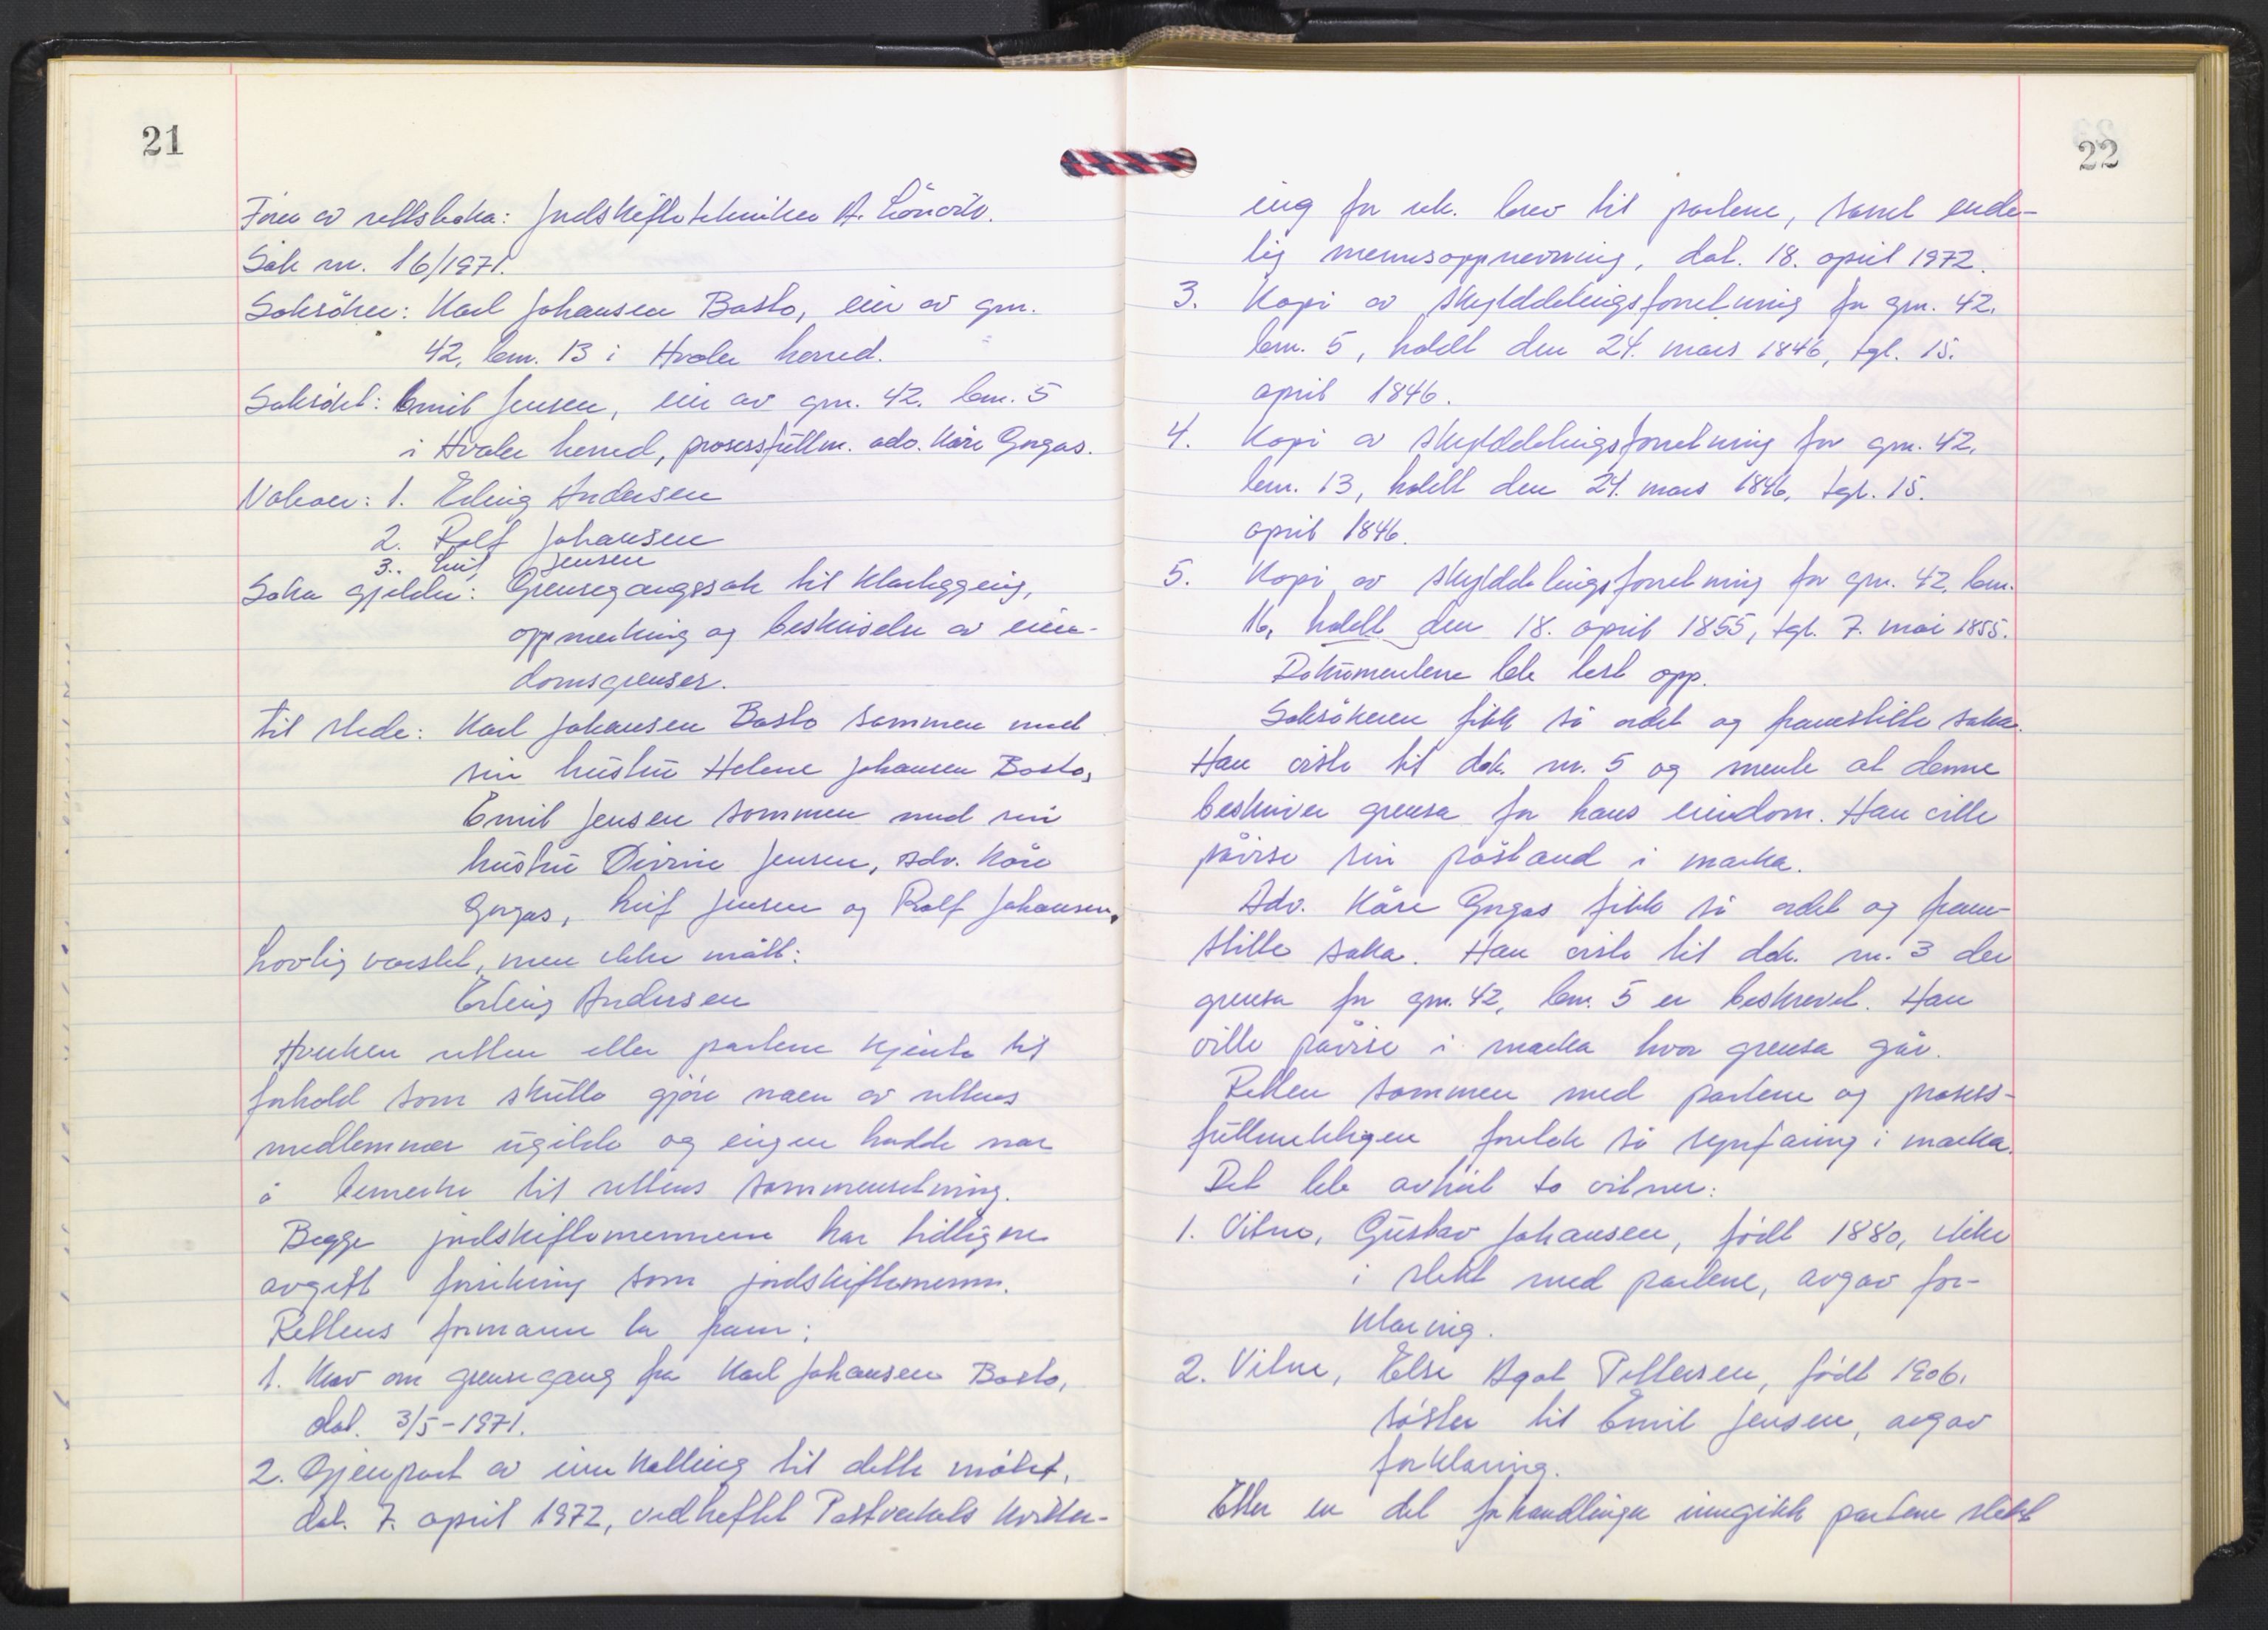 21
Fører av rettsboka: Jordskiftetekniker A. Lönvik.
Sak nr. 16/1971.
Saksöker: Karl Johansen Basto, eier av gnr.
42, bnr. 13 i Hvaler herred.
Saksökt: Emil Jensen, eier av gnr. 42. bnr. 5
i Hvaler herred, prosessfullm. adv. Kåre Gorgas.
Naboer: 1. Erling Andersen
2. Rolf Johansen
3. Leif Jensen
Saka gjelder: Grensegangssak til klarlegging,
oppmerking og beskrivelse av eien-
domsgrenser.
Til stede: Karl Johansen Basto sammen med
sin hustru Helene Johansen Basto,
Emil Jensen sammen med sin
hustru Jensen, adv. Kåre
Gorgas, Leif Jensen og Rolf Johansen.
Lovlig varslet, men ikke mött:
Erling Andersen
Hverken retten eller partene kjente til
forhold som skulle gjöre noen av rettens
medlemmer ugilde og ingen hadde noe
å bemerke til rettens sammensetning.
Begge jordskiftemennene har tidligere
avgitt forsikring som jordskiftemenn.
Rettens formann la fram:
1. Krav om grensegang fra Karl Johansen Basto,
dat. 3/5-1971.
2. Gjenpart av innkalling til dette mötet,
dat. 7. april 1972, vedheftet Postverkets kvitter-
22
ing for rek. brev til partene, samt ende-
lig mennsoppnevning, dat. 18. april 1972.
3. Kopi av skylddelingsforretning for gnr. 42,
bnr. 5, holdt den 24. mars 1846, tgl. 15.
april 1846.
4. Kopi av skylddelingsforretning for gnr. 42,
bnr. 13, holdt den 24. mars 1846, tgl. 15.
april 1846.
5. Kopi av skylddelingsforretning for gnr. 42, bnr.
16, holdt den 18. april 1855, tgl. 7. mai 1855.
Dokumentene ble lest opp.
Saksökeren fikk så ordet og framstilte saka.
Han viste til dok. nr. 5 og mente at denne
beskriver grensa for hans eiendom. Han ville
påvise sin påstand i marka.
Adv. Kåre Gorgas fikk så ordet og fram-
stilte saka. Han viste til dok. nr. 3 der
grensa for gnr. 42, bnr. 5 er beskrevet. Han
ville påvise i marka hvor grensa går.
Retten sammen med partene og prosess-
fullmektigen foretok så synfaring i marka.
Det ble avhört to vitner:
1. Vitne, Gustav Johansen, födt 1880, ikke
i slekt med partene, avgav for-
klaring.
2. Vitne, Else Agot Pettersen, födt 1906.
söster til Emil Jensen, avgav
forklaring.
Etter en del forhandlinger inngikk partene slikt